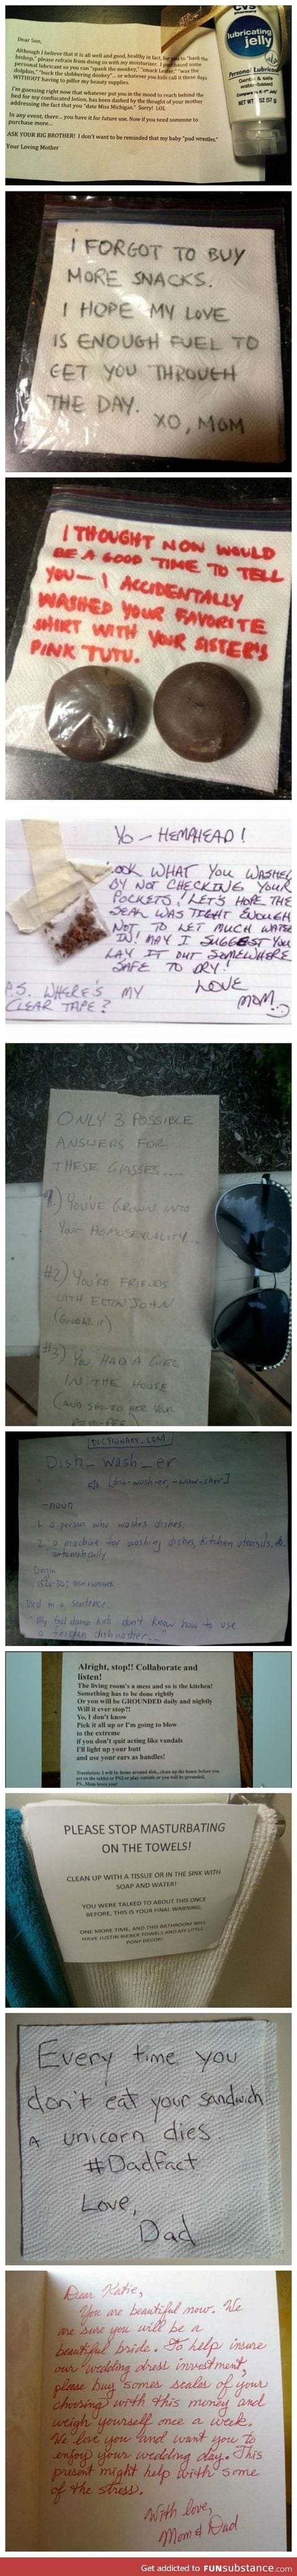 Dear Son,
Although I believe that it is all well and good, healthy in fact, for you to "bash the
bishop," please refrain from doing so with my moisturizer. I purchased some
personal lubricant so you can "spank the monkey," "smack Lester," "wax the
dolphin," "buck the slobbering donkey"... or whatever you kids call it these days
WITHOUT having to pilfer my beauty supplies.
I'm guessing right now that whatever put you in the mood to reach behind the
bed for my confiscated lotion, has been dashed by the thought of your mother
addressing the fact that you "date Miss Michigan." Sorry! LOL
In any event, there... you have it for future use. Now if you need someone to
purchase more...
ASK YOUR BIG BROTHER! I don't want to be reminded that my baby "pud wrestles."
Your Loving Mother
CVS
lubricating
jelly
Personal Lubricant
I FORGOT TO BUY
MORE SNACKS.
I HOPE MY LOVE
IS ENOUGH FUEL TO
GET YOU THROUGH
THE DAY.
XO, MOM
I THOUGHT NOW WOULD
BE A GOOD TIME TO TELL
YOU— I ACCIDENTALLY
WASHED YOUR FAVORITE
SHIRT WITH YOUR SISTER'S
PINK TUTU.
YO - HEMPHEAD!
LOOK WHAT YOU WASHED
BY NOT CHECKING YOUR
POCKETS! LET'S HOPE THE
SEAL WAS TIGHT ENOUGH
NOT TO LET MUCH WATER
IN! MAY I SUGGEST YOU
LAY IT OUT SOMEWHERE
SAFE TO DRY!
LOVE
MOM
P.S. WHERE'S MY
CLEAR TAPE?
ONLY 3 POSSIBLE
ANSWERS FOR
THESE GLASSES....
#1) YOU'VE GROWN INTO
YOUR HOMOSEXUALITY...
#2) YOU'RE FRIENDS
WITH ELTON JOHN
(GOOGLE IT)
#3) YOU HAD A GIRL
IN THE HOUSE
(AND SHOWED HER YOUR
DICTIONARY.COM
Dish_wash_er
[dish-wosh-er, -waw-sher]
-noun
1. a person who washes dishes.
2. a machine for washing dishes, kitchen utensils, etc.
automatically
Origin
Used in a sentence.
"My god damn kids don't know how to use
a dishwasher..."
Alright, stop!! Collaborate and
listen!
The living room's a mess and so is the kitchen!
Something has to be done rightly
Or you will be GROUNDED daily and nightly
Will it ever stop?!
Yo, I don't know
Pick it all up or I'm going to blow
to the extreme
if you don't quit acting like vandals
I'll light up your butt
and use your ears as handles!
Translation: I will be home around 4ish, clean up the house before you
get on the tablet or PS3 or play outside or you will be grounded.
PS...Mom loves you!
PLEASE STOP MASTURBATING
ON THE TOWELS!
CLEAN UP WITH A TISSUE OR IN THE SINK WITH
SOAP AND WATER!
YOU WERE TALKED TO ABOUT THIS ONCE
BEFORE, THIS IS YOUR FINAL WARNING.
ONE MORE TIME, AND THIS BATHROOM WILL
HAVE JUSTIN BIEBER TOWELS AND MY LITTLE
PONY DECOR!
Every time you
don't eat your sandwich
A unicorn dies.
#DadFact
Love,
Dad
Dear Katie,
You are beautiful now. We
are sure you will be a
beautiful bride. To help insure
our wedding dress investment,
please buy somes scales of your
choosing with this money and
weigh yourself once a week.
We love you and want you to
enjoy your wedding day. This
present might help with some
of the stress.
With love,
Mom & Dad
Get addicted to FUNsubstance.com